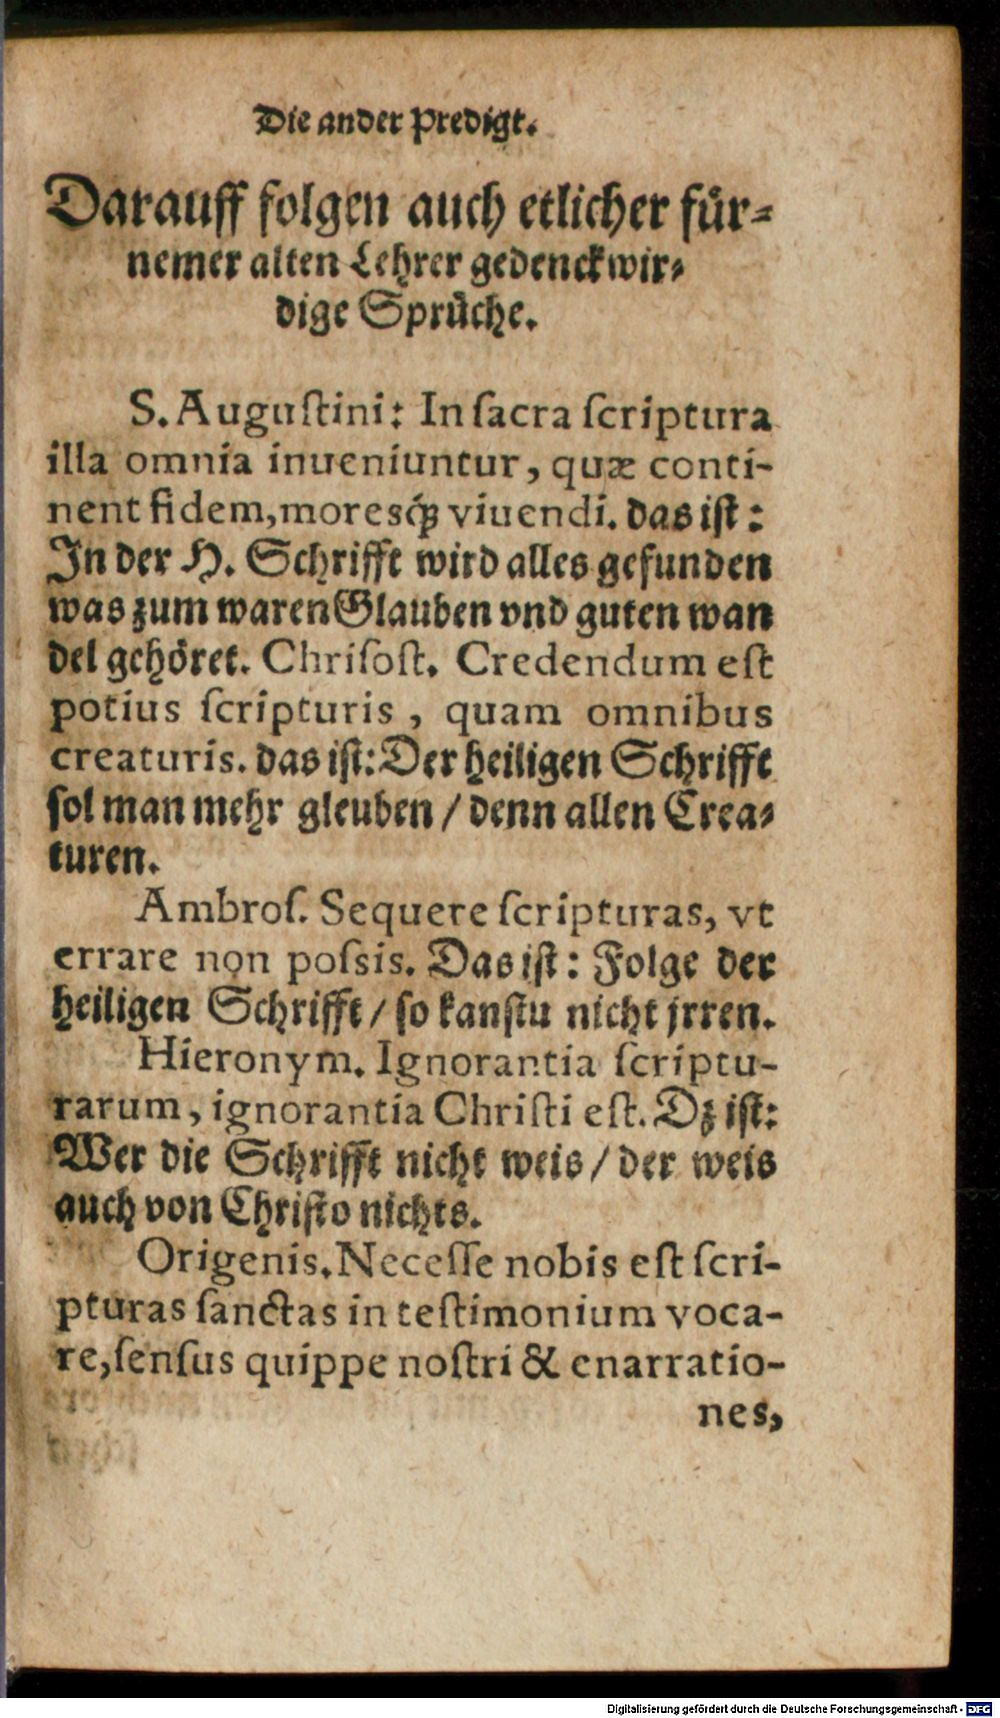 Die ander Predigt.
Darauff folgen auch etlicher fuͤr-
nemer alten Lehrer gedenckwir-
dige Spruͤche.
S. Auguſtini: In ſacra ſcriptura
illa omnia inueniuntur, quæ conti-
nent fidem, moresq́; viuendi. das iſt:
In der H. Schrifft wird alles gefunden
was zum waren Glauben vnd guten wan
del gehoͤret. Chriſoſt. Credendum eſt
potius ſcripturis, quam omnibus
creaturis. das iſt: Der heiligen Schrifft
ſol man mehr gleuben / denn allen Crea-
turen.
Ambroſ. Sequere ſcripturas, vt
errare non poſsis. Das iſt: Folge der
heiligen Schrifft / ſo kanſtu nicht jrren.
Hieronym. Ignorantia ſcriptu-
rarum, ignorantia Chriſti eſt. Dz iſt:
Wer die Schrifft nicht weis / der weis
auch von Chriſto nichts.
Origenis. Neceſſe nobis eſt ſcri-
pturas ſanctas in teſtimonium voca-
re, ſenſus quippe noſtri & enarratio-
nes,
Digitalisierung gefördert durch die Deutsche Forschungsgemeinschaft - DFG